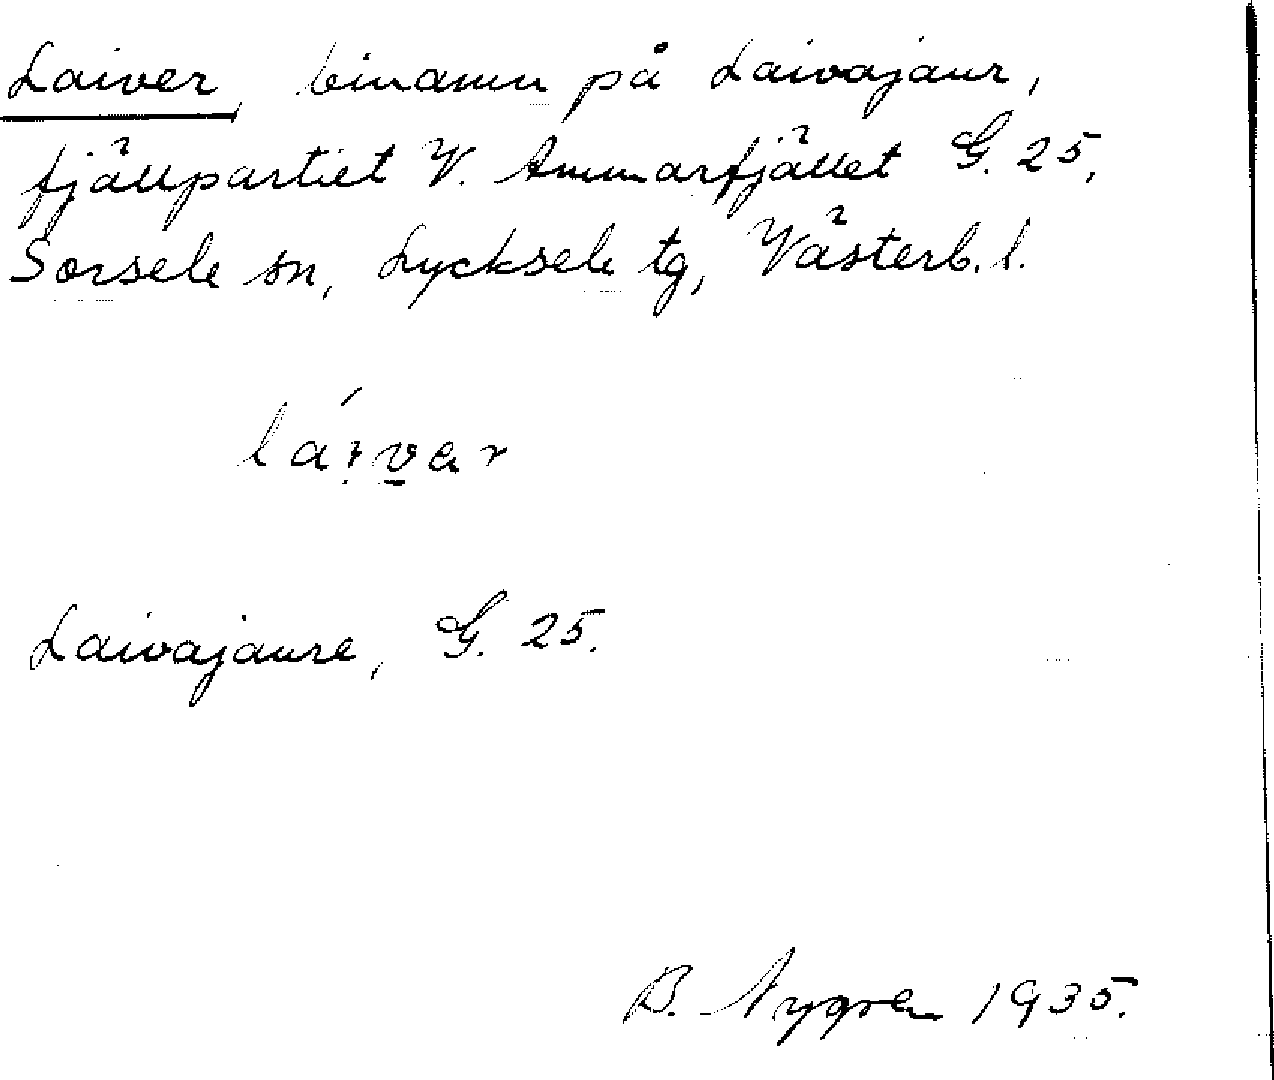 Laiver, binamn på Laivajaur,
fjällpartiet V. Ammarfjället G. 25,
Sorsele sn, Lycksele tg, Västerb. l.
Laivajaure, G. 25.
B. Nygren 1935.